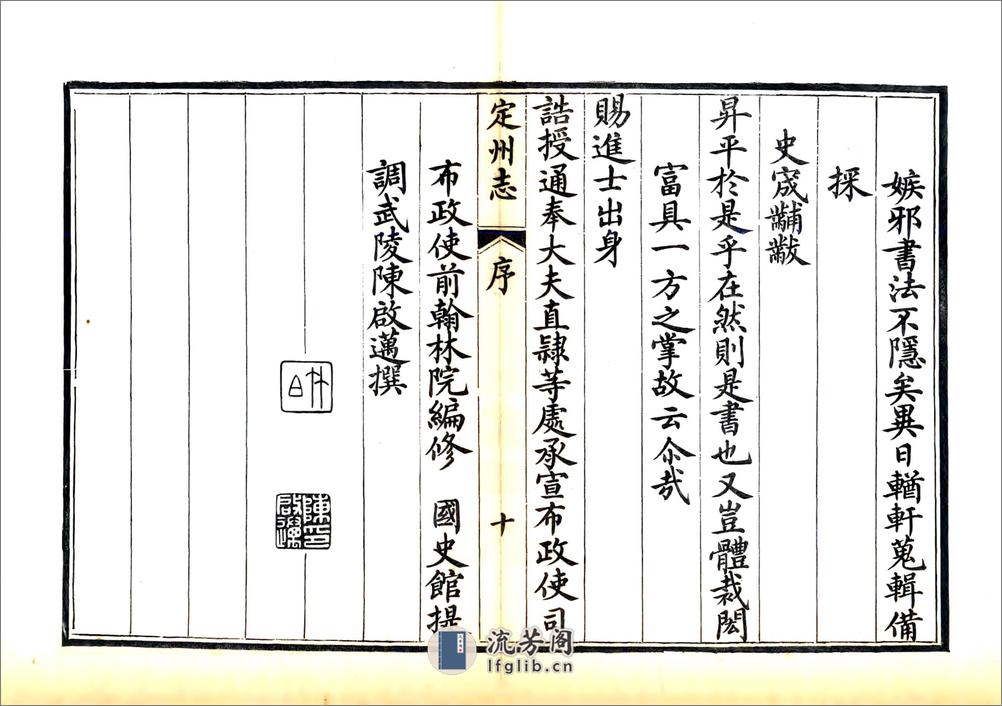 嫉邪書法不隱矣異日輶軒蒐輯備
採
史宬黼黻
昇平於是乎在然則是書也又豈體裁閎
富具一方之掌故云尒哉
賜進士出身
誥授通奉大夫直隸等處承宣布政使司
定州志 序 十
布政使前翰林院編修 國史館提
調武陵陳啟邁撰
竹
陳印
啟邁
流芳阁
lfglib.cn